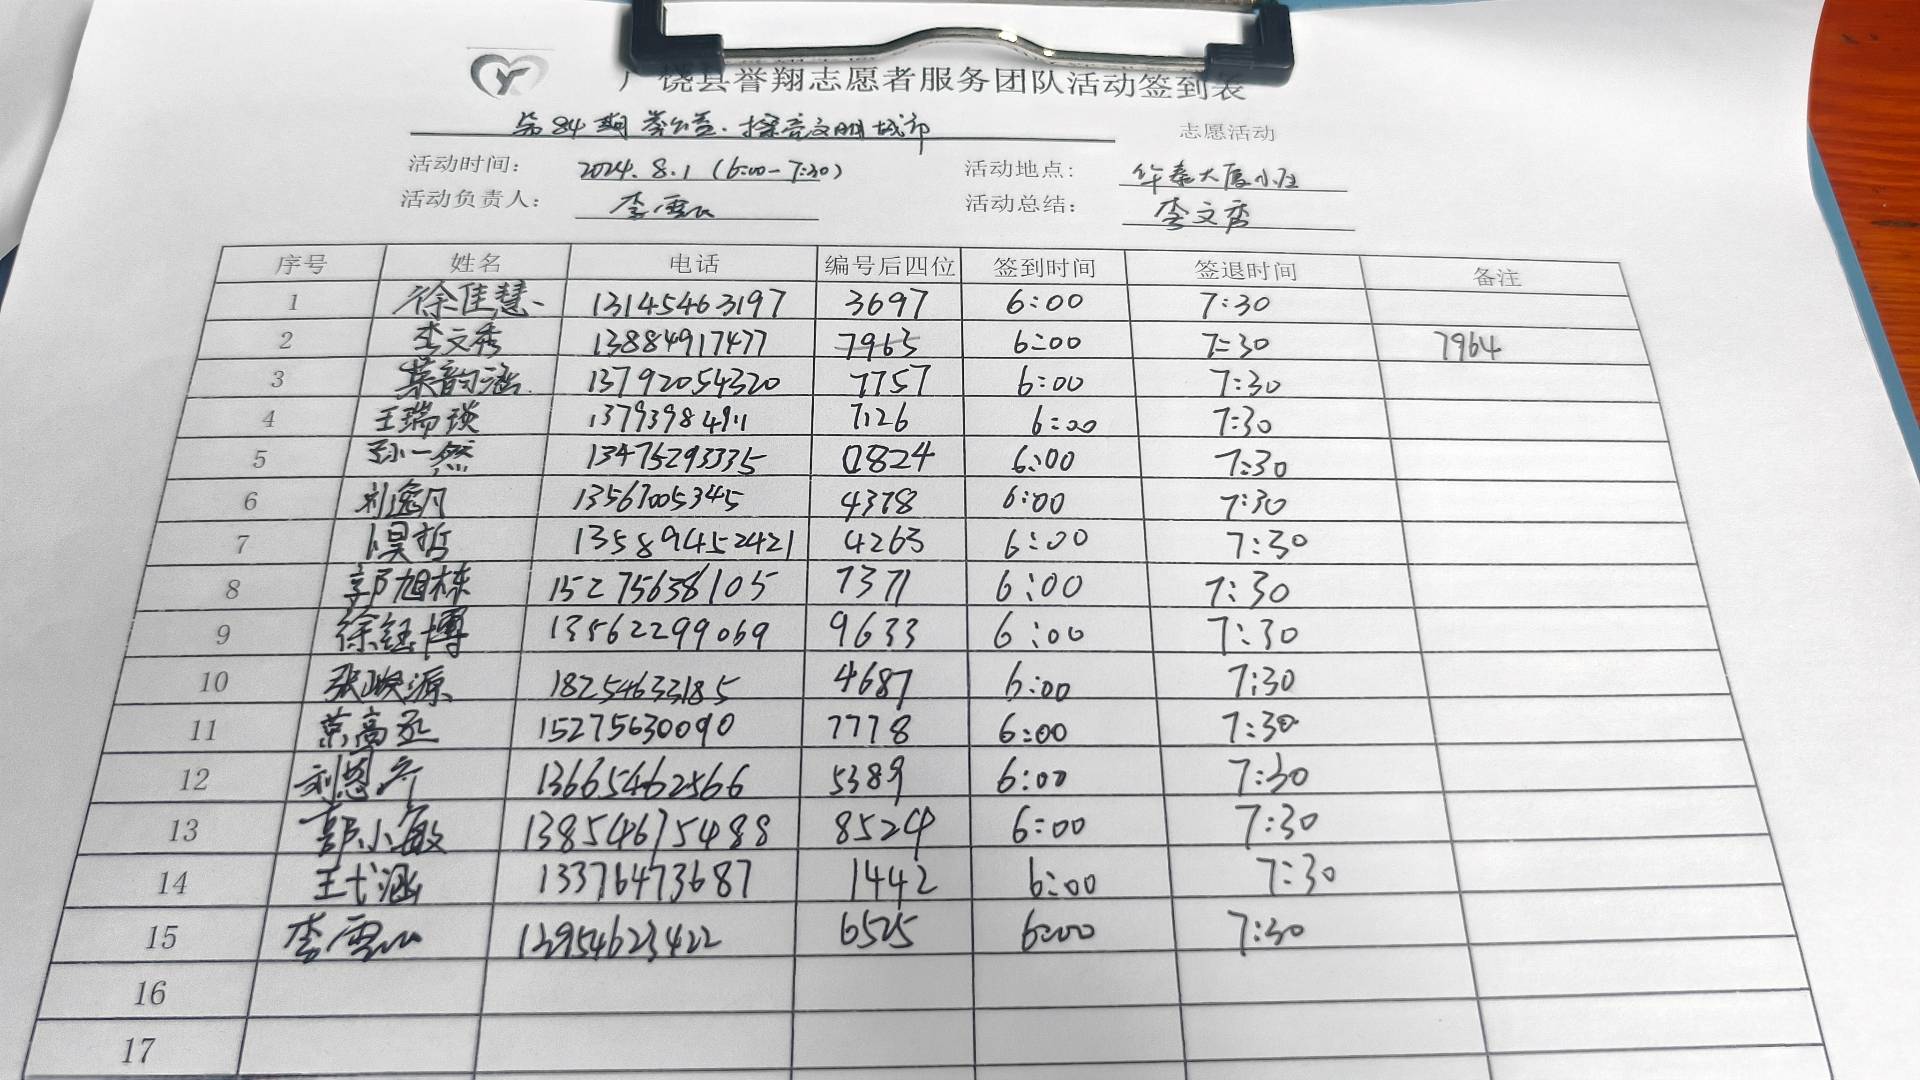 广饶县誉翔志愿者服务团队活动签到表
第84期 益公益·擦亮文明城市 志愿活动
活动时间: 2024.8.1 (6:00-7:30) 活动地点: 华泰大厦小区
活动负责人: 李雪 活动总结: 李文秀
序号 姓名 电话 编号后四位 签到时间 签退时间 备注
1 徐佳慧 13145463197 3697 6:00 7:30
2 李文秀 13884917477 7965 6:00 7:30 7964
3 韵涵 13792054320 7757 6:00 7:30
4 王瑞琰 13793984911 7126 6:00 7:30
5 孙一然 13475293335 0824 6:00 7:30
6 刘逸凡 13567005345 4378 6:00 7:30
7 昊哲 135894452421 4263 6:00 7:30
8 郭旭栋 15275638105 7371 6:00 7:30
9 徐钰博 13562299069 9633 6:00 7:30
10 张峻源 18254633185 4687 6:00 7:30
11 高丞 15275630090 7778 6:00 7:30
12 刘恩 13665462566 5389 6:00 7:30
13 郭小敏 13854675488 8524 6:00 7:30
14 王弋涵 13376473687 1442 6:00 7:30
15 李雪 13954623422 6525 6:00 7:30
16
17